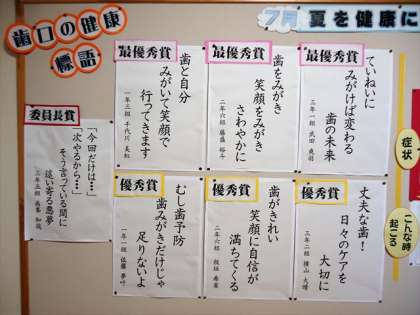 歯口の健康
標語
7月 夏を健康に
最優秀賞
ていねいに
みがけば変わる
歯の未来
三年一組 武田
最優秀賞
歯をみがき
笑顔をみがき
さわやかに
二年六組
最優秀賞
歯と自分
みがいて笑顔で
行ってきます
一年三組 千代川
委員長賞
「今回だけは…」
「次やるから…」
そう言っている間に
這い寄る悪夢
三年五組
優秀賞
丈夫な歯!
日々のケアを
大切に
三年二組 横山 大晴
優秀賞
歯がきれい
笑顔に自信が
満ちてくる
二年六組
優秀賞
むし歯予防
歯みがきだけじゃ
足りないよ
一年一組 佐藤
症状
こんな時
起こる